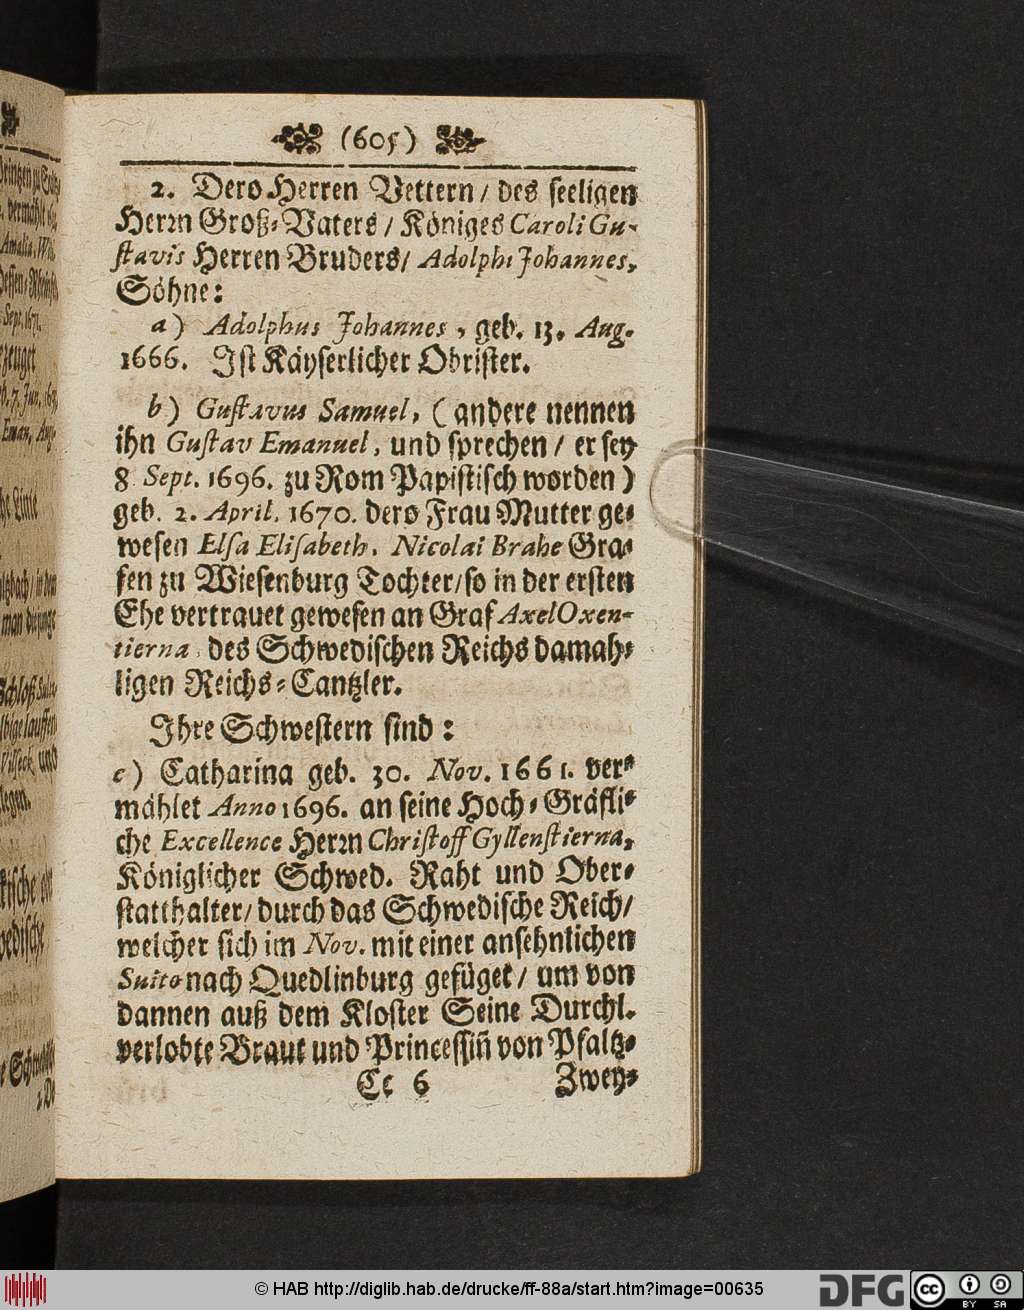 (605)
2. Dero Herren Vettern / des seeligen
Herrn Groß-Vaters / Königes Caroli Gu-
stavis Herren Bruders / Adolphi Johannes,
Söhne:
a) Adolphus Johannes, geb. 13. Aug.
1666. Ist Käyserlicher Obrister.
b) Gustavus Samuel, (andere nennen
ihn Gustav Emanuel, und sprechen / er sey
8 Sept. 1696. zu Rom Papistisch worden)
geb. 2. April. 1670. dero Frau Mutter ge-
wesen Elsa Elisabeth, Nicolai Brahe Gra-
fen zu Wiesenburg Tochter / so in der ersten
Ehe vertrauet gewesen an Graf Axel Oxen-
tierna, des Schwedischen Reichs damah-
ligen Reichs-Cantzler.
Ihre Schwestern sind:
c) Catharina geb. 30. Nov. 1661. ver-
mählet Anno 1696. an seine Hoch-Gräfli-
che Excellence Herrn Christoff Gyllenstierna,
Königlicher Schwed. Raht und Ober-
statthalter / durch das Schwedische Reich /
welcher sich im Nov. mit einer ansehnlichen
Suito nach Quedlinburg gefüget / um von
dannen auß dem Kloster Seine Durchl.
verlobte Braut und Princessin̄ von Pfaltz-
Cc 6 Zwey-
© HAB http://diglib.hab.de/drucke/ff-88a/start.htm?image=00635
DFG
cc BY SA